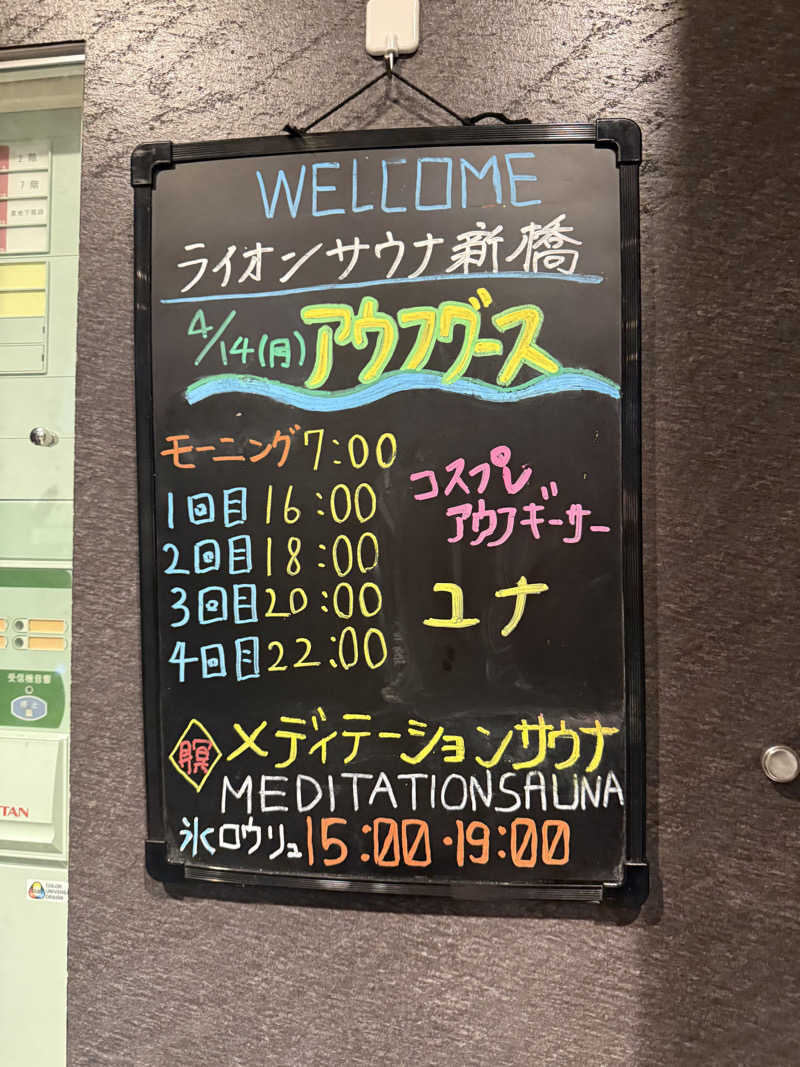 WELCOME
ライオンサウナ新橋
4/14(月) アウフグース
モーニング 7:00
1回目 16:00
2回目 18:00
3回目 20:00
4回目 22:00
コスプレ
アウフギーサー
ユナ
メディテーションサウナ
MEDITATIONSAUNA
氷ロウリュ 15:00・19:00
2階
7階
受信機音響
停止
TTAN
COLOR
UNIVERSAL
DESIGN